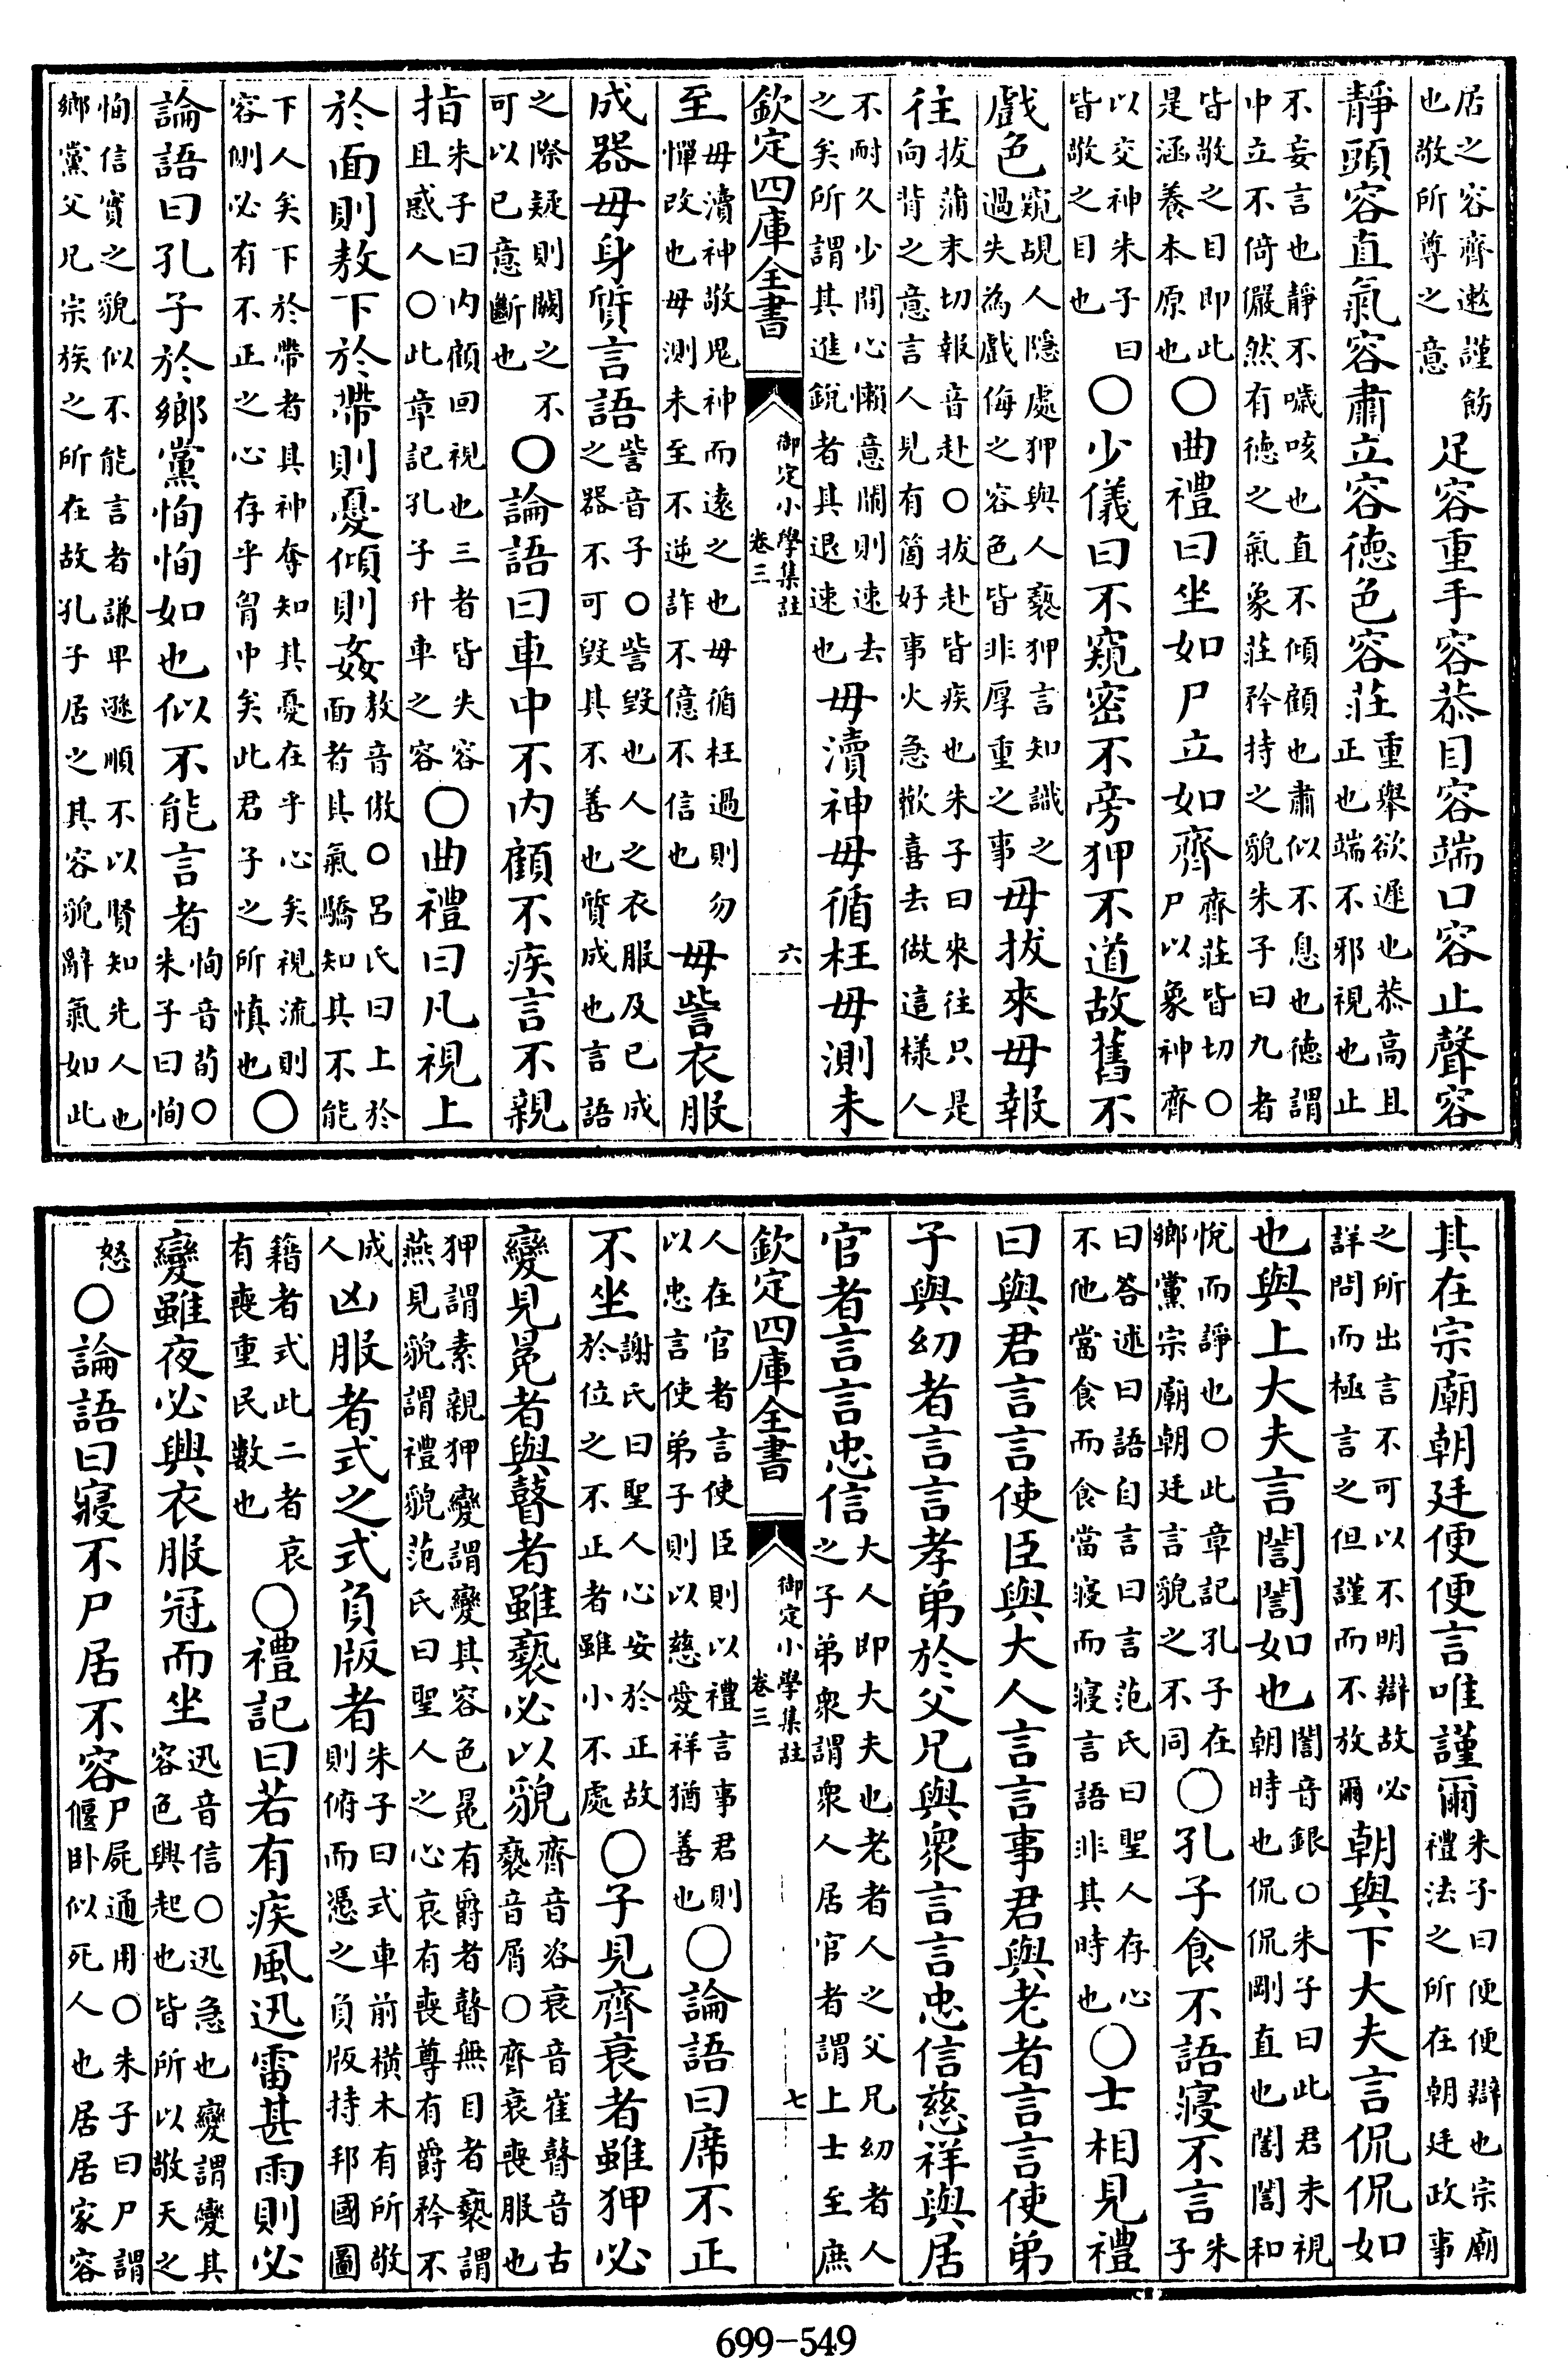 居之容齊遬謹飭
也敬所尊之意
足容重手容恭目容端口容止聲容
靜頭容直氣容肅立容德色容莊
重舉欲遲也恭高且
正也端不邪視也止
不妄言也靜不噦咳也直不傾顧也肅似不息也德謂
中立不倚儼然有德之氣象莊矜持之貌朱子曰九者
皆敬之目即此
是涵養本原也
○曲禮曰坐如尸立如齊
齊莊皆切○
尸以象神齊
以交神朱子曰
皆敬之目也
○少儀曰不窺密不旁狎不道故舊不
戲色
窺覘人隱處狎與人褻狎言知識之
過失為戲侮之容色皆非厚重之事
毋拔來毋報
往
拔蒲末切報音赴○拔赴皆疾也朱子曰來往只是
向背之意言人見有箇好事火急歡喜去做這樣人
不耐久少間心懶意闌則速去
之矣所謂其進銳者其退速也
毋瀆神毋循枉毋測未
欽定四庫全書
御定小學集註
卷三
六
至
毋瀆神敬鬼神而遠之也毋循枉過則勿
憚改也毋測未至不逆詐不億不信也
毋訾衣服
成器毋身質言語
訾音子○訾毀也人之衣服及已成
之器不可毀其不善也質成也言語
之際疑則闕之不
可以已意斷也
○論語曰車中不内顧不疾言不親
指
朱子曰内顧回視也三者皆失容
且惑人○此章記孔子升車之容
○曲禮曰凡視上
於面則敖下於帶則憂傾則姦
敖音傲○呂氏曰上於
面者其氣驕知其不能
下人矣下於帶者其神奪知其憂在乎心矣視流則
容側必有不正之心存乎胷中矣此君子之所慎也
○
論語曰孔子於鄉黨恂恂如也似不能言者
恂音荀○
朱子曰恂
恂信實之貌似不能言者謙卑遜順不以賢知先人也
鄉黨父兄宗族之所在故孔子居之其容貌辭氣如此
其在宗廟朝廷便便言唯謹爾
朱子曰便便辯也宗廟
禮法之所在朝廷政事
之所出言不可以不明辯故必
詳問而極言之但謹而不放爾
朝與下大夫言侃侃如
也與上大夫言誾誾如也
誾音銀○朱子曰此君未視
朝時也侃侃剛直也誾誾和
悅而諍也○此章記孔子在
鄉黨宗廟朝廷言貌之不同
○孔子食不語寢不言
朱
子
曰答述曰語自言曰言范氏曰聖人存心
不他當食而食當寢而寢言語非其時也
○士相見禮
曰與君言言使臣與大人言言事君與老者言言使弟
子與幼者言言孝弟於父兄與衆言言忠信慈祥與居
官者言言忠信
大人即大夫也老者人之父兄幼者人
之子弟衆謂衆人居官者謂上士至庶
欽定四庫全書
御定小學集註
卷三
七
人在官者言使臣則以禮言事君則
以忠言使弟子則以慈愛祥猶善也
○論語曰席不正
不坐
謝氏曰聖人心安於正故
於位之不正者雖小不處
○子見齊衰者雖狎必
變見冕者與瞽者雖褻必以貌
齊音咨衰音崔瞽音古
褻音屑○齊衰喪服也
狎謂素親狎變謂變其容色冕有爵者瞽無目者褻謂
燕見貌謂禮貌范氏曰聖人之心哀有喪尊有爵矜不
成
人
凶服者式之式負版者
朱子曰式車前橫木有所敬
則俯而憑之負版持邦國圖
籍者式此二者哀
有喪重民數也
○禮記曰若有疾風迅雷甚雨則必
變雖夜必興衣服冠而坐
迅音信○迅急也變謂變其
容色興起也皆所以敬天之
怒
○論語曰寢不尸居不容
尸屍通用○朱子曰尸謂
偃卧似死人也居居家容
699-549